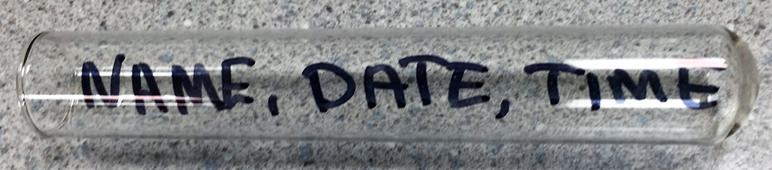 NAME, DATE, TIME